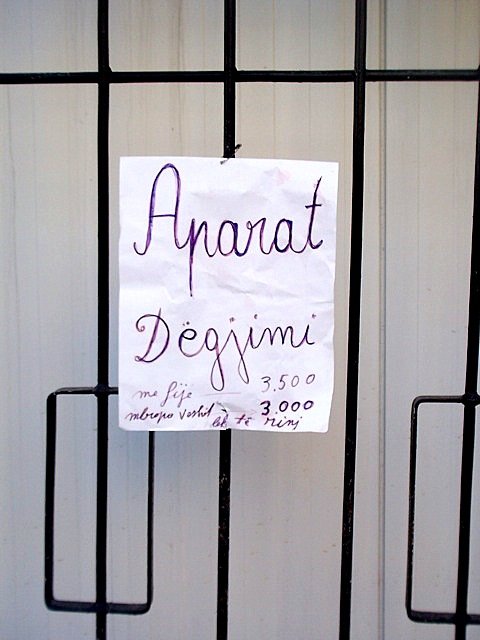 Aparat
Dëgjimi
me fije — 3.500
mbrapa veshit 3.000
lek të rinj